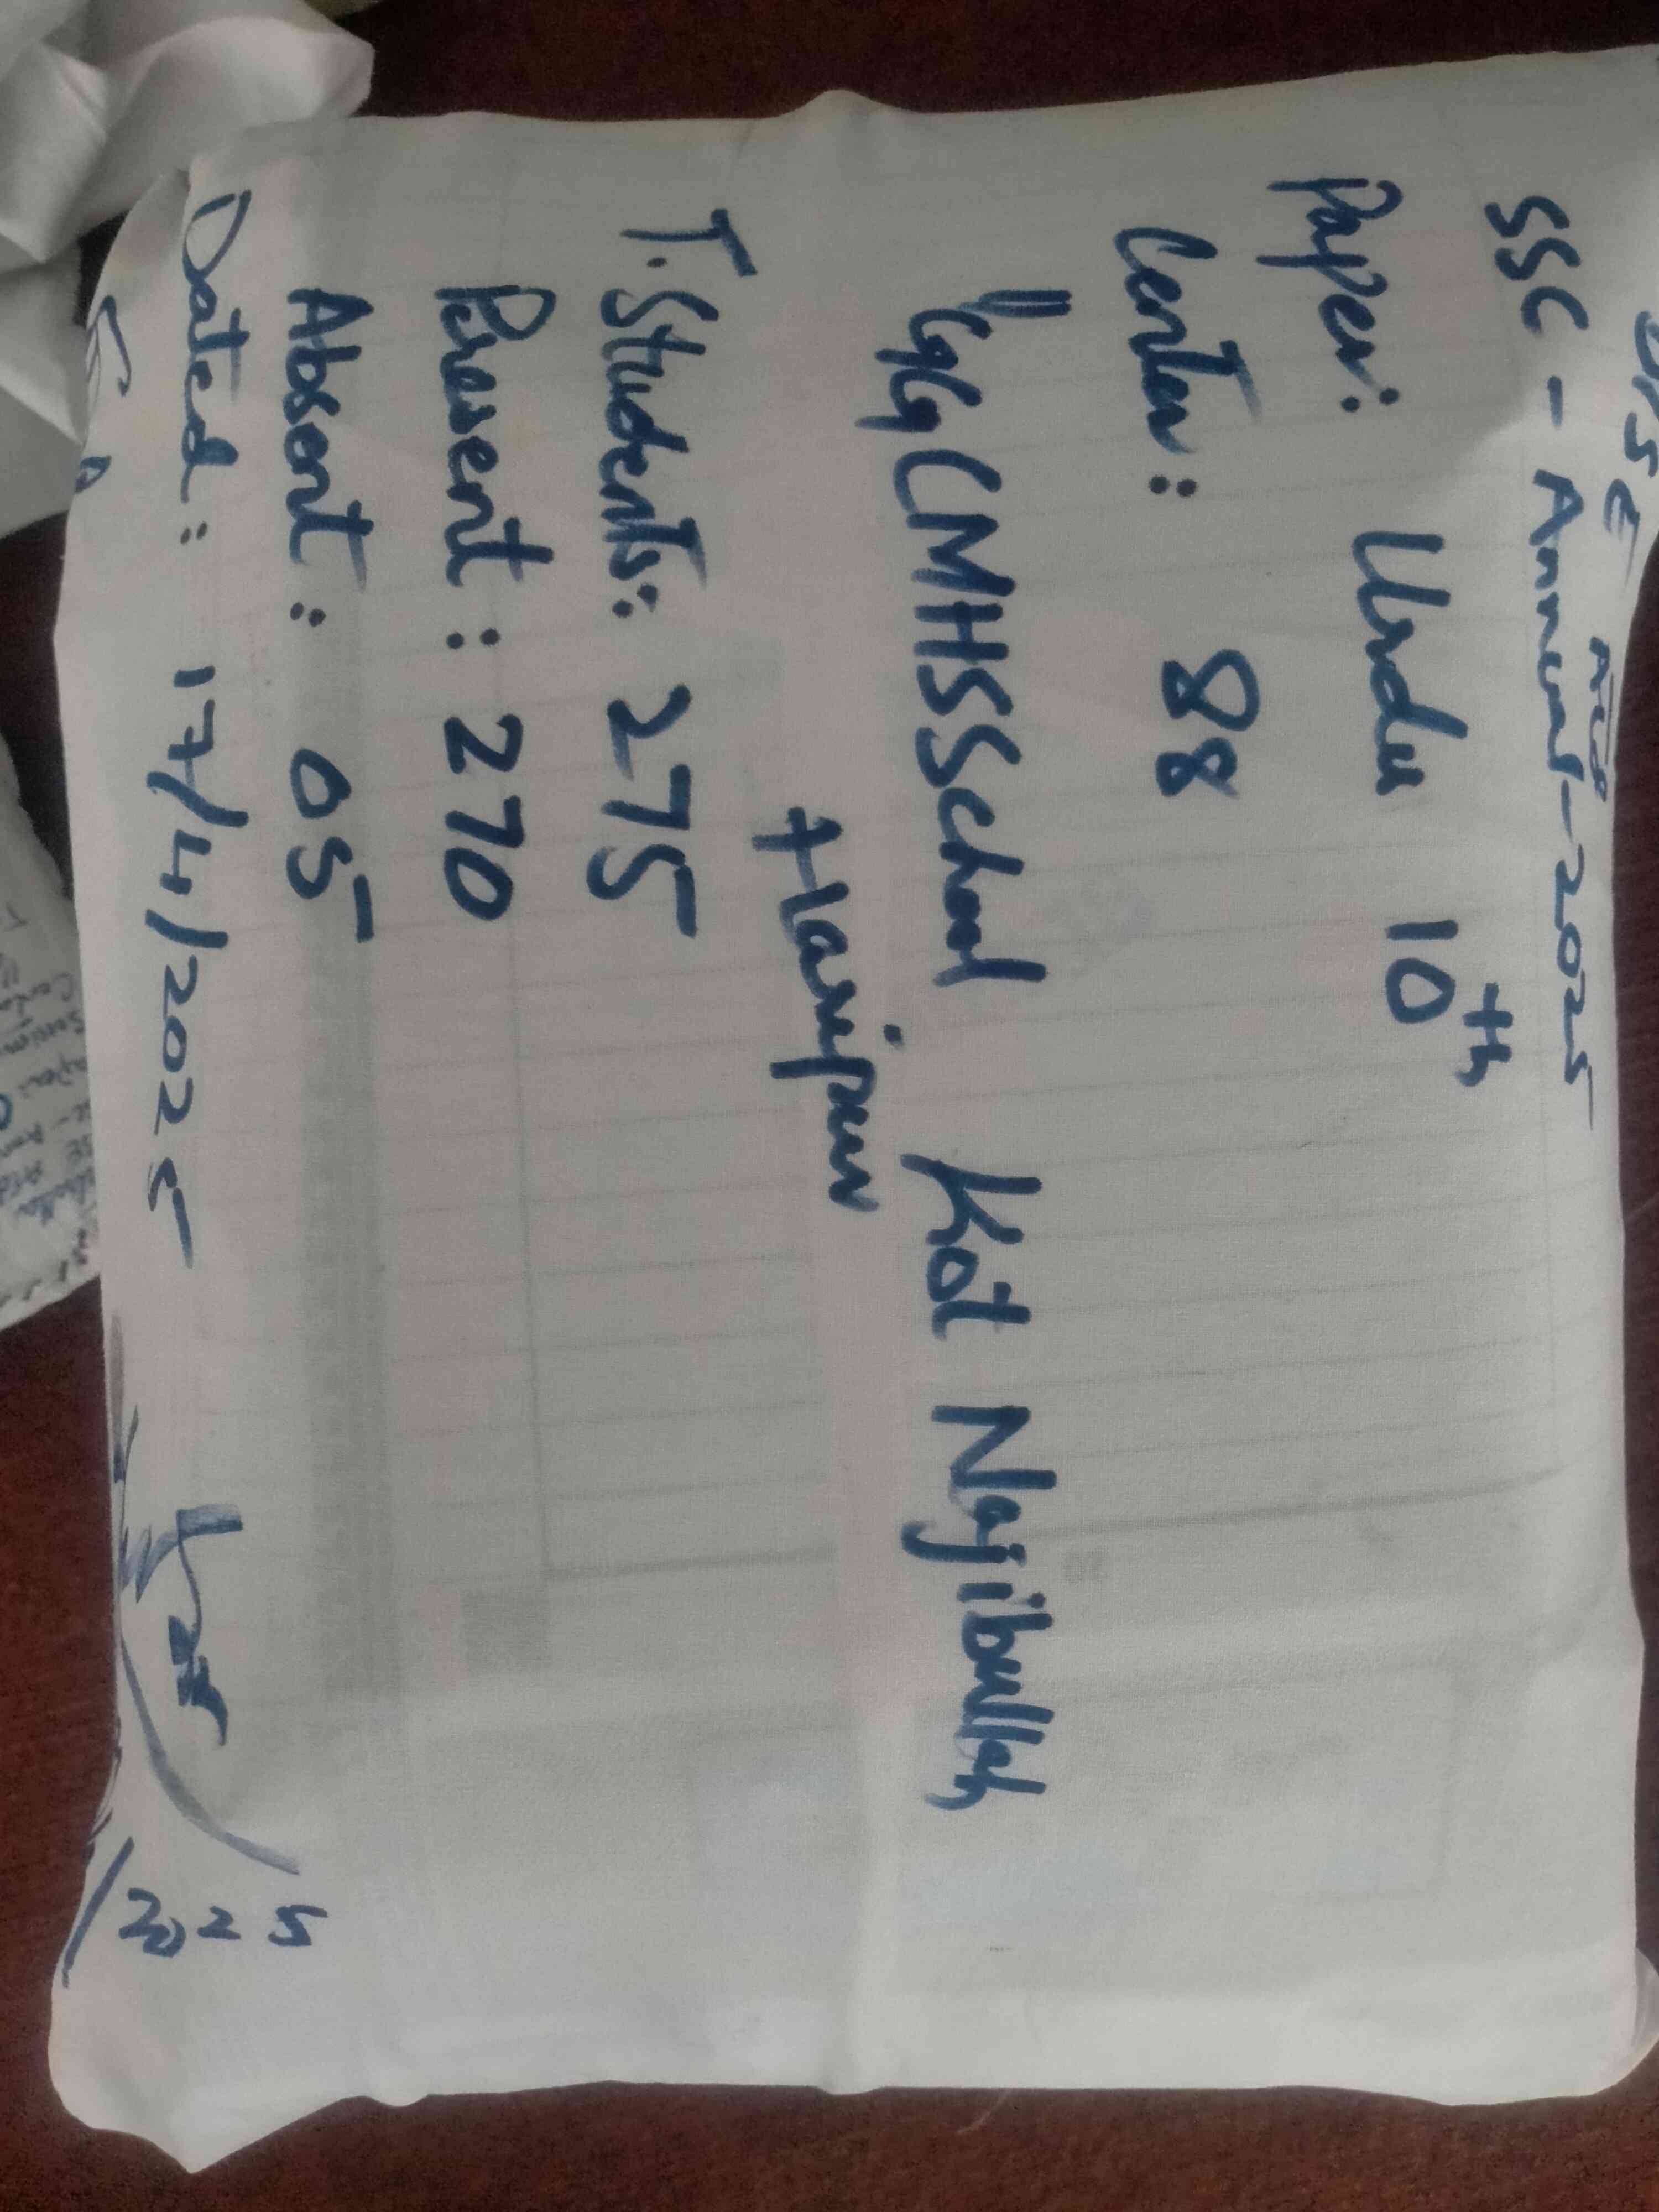 BISE ATD
SSC - Annual-2025
Paper: Urdu 10th
Center: 88
GGCMHSSchool Kot Najibullah
Haripur
T. Students: 275
Present: 270
Absent: 05
Dated: 17/4/2025
/2025